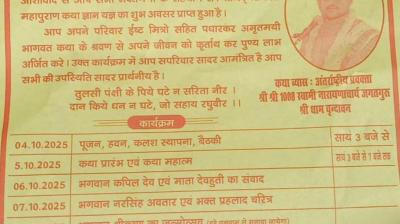 महापुराण कथा ज्ञान यज्ञ का शुभ अवसर प्राप्त हुआ है।
आप अपने परिवार ईष्ट मित्रो सहित पधारकर अमृतमयी
भागवत कथा के श्रवण से अपने जीवन को कृर्ताथ कर पुण्य लाभ
अर्जित करे। उक्त कार्यक्रम में आप सपरिवार सादर आमत्रित है आप
सभी की उपस्थिति सादर प्रार्थनीय है।
तुलसी पंक्षी के पिये घटे न सरिता नीर।
दान किये धन न घटे, जो सहाय रघुबीर ।।
कथा व्यास : अंतर्राष्ट्रीय प्रवक्ता
श्री श्री 1008 स्वामी नारायणाचार्य जगतगुरु
श्री धाम वृन्दावन
कार्यक्रम
04.10.2025 पूजन, हवन, कलश स्थापना, बैठकी सायं 3 बजे से
5.10.2025 कथा प्रारंभ एवं कथा महात्म सायं 3 बजे से 7 बजे तक
06.10.2025 भगवान कपिल देव एवं माता देवहुती का संवाद
07.10.2025 भगवान नरसिंह अवतार एवं भक्त प्रहलाद चरित्र